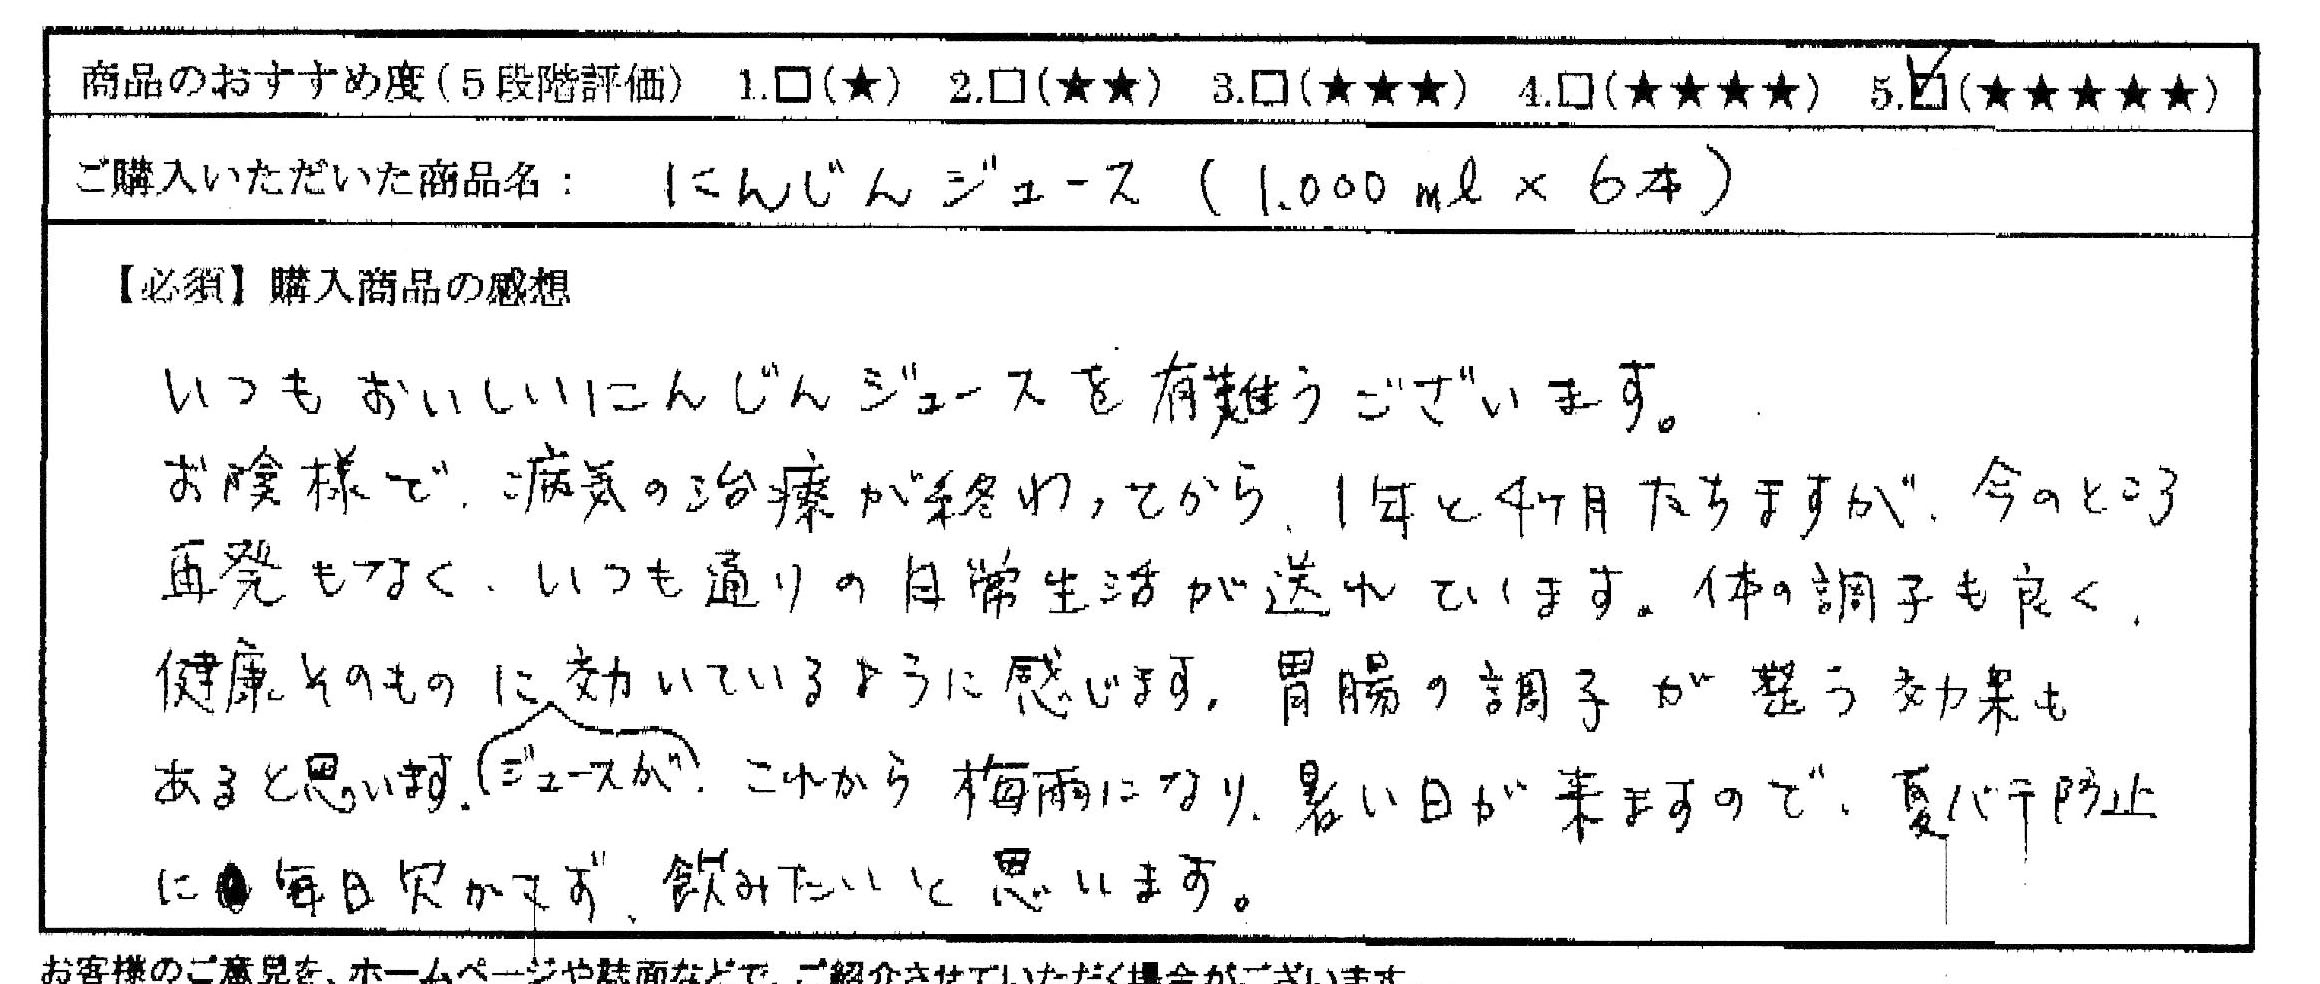 商品のおすすめ度(5段階評価) 1.□(★) 2.□(★★) 3.□(★★★) 4.□(★★★★) 5.☑(★★★★★)
ご購入いただいた商品名: にんじんジュース (1.000ml×6本)
【必須】購入商品の感想
いつもおいしいにんじんジュースを有難うございます。
お陰様で、病気の治療が終わってから、1年と4ヶ月たちますが、今のところ
再発もなく、いつも通りの日常生活が送れています。体の調子も良く、
健康そのものに効いているように感じます。胃腸の調子が整う効果も
あると思います。(ジュースが) これから梅雨になり、暑い日が来ますので、夏バテ防止
に毎日欠かさず、飲みたいと思います。
お客様のご意見を、ホームページや誌面などで、ご紹介させていただく場合がございます